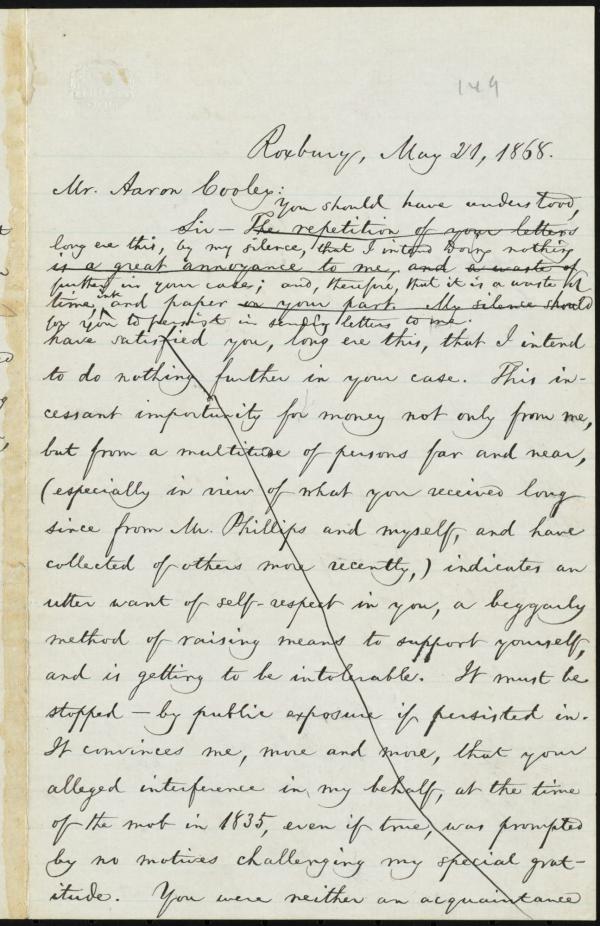 149
Roxbury, May 21, 1868.
Mr. Aaron Cooley:
You should have understood,
Sir — The repetition of your letters
long ere this, by my silence, that I intend doing nothing
is a great annoyance to me, and a waste of
further in your case; and, therefore, that it is a waste of
time, ink and paper on your part. My silence should
for you to persist in sending letters to me.
have satisfied you, long ere this, that I intend
to do nothing further in your case. This in-
cessant importunity for money not only from me,
but from a multitude of persons far and near,
(especially in view of what you received long
since from Mr. Phillips and myself, and have
collected of others more recently,) indicates an
utter want of self-respect in you, a beggarly
method of raising means to support yourself,
and is getting to be intolerable. It must be
stopped — by public exposure if persisted in.
It convinces me, more and more, that your
alleged interference in my behalf, at the time
of the mob in 1835, even if true, was prompted
by no motives challenging my special grat-
itude. You were neither an acquaintance